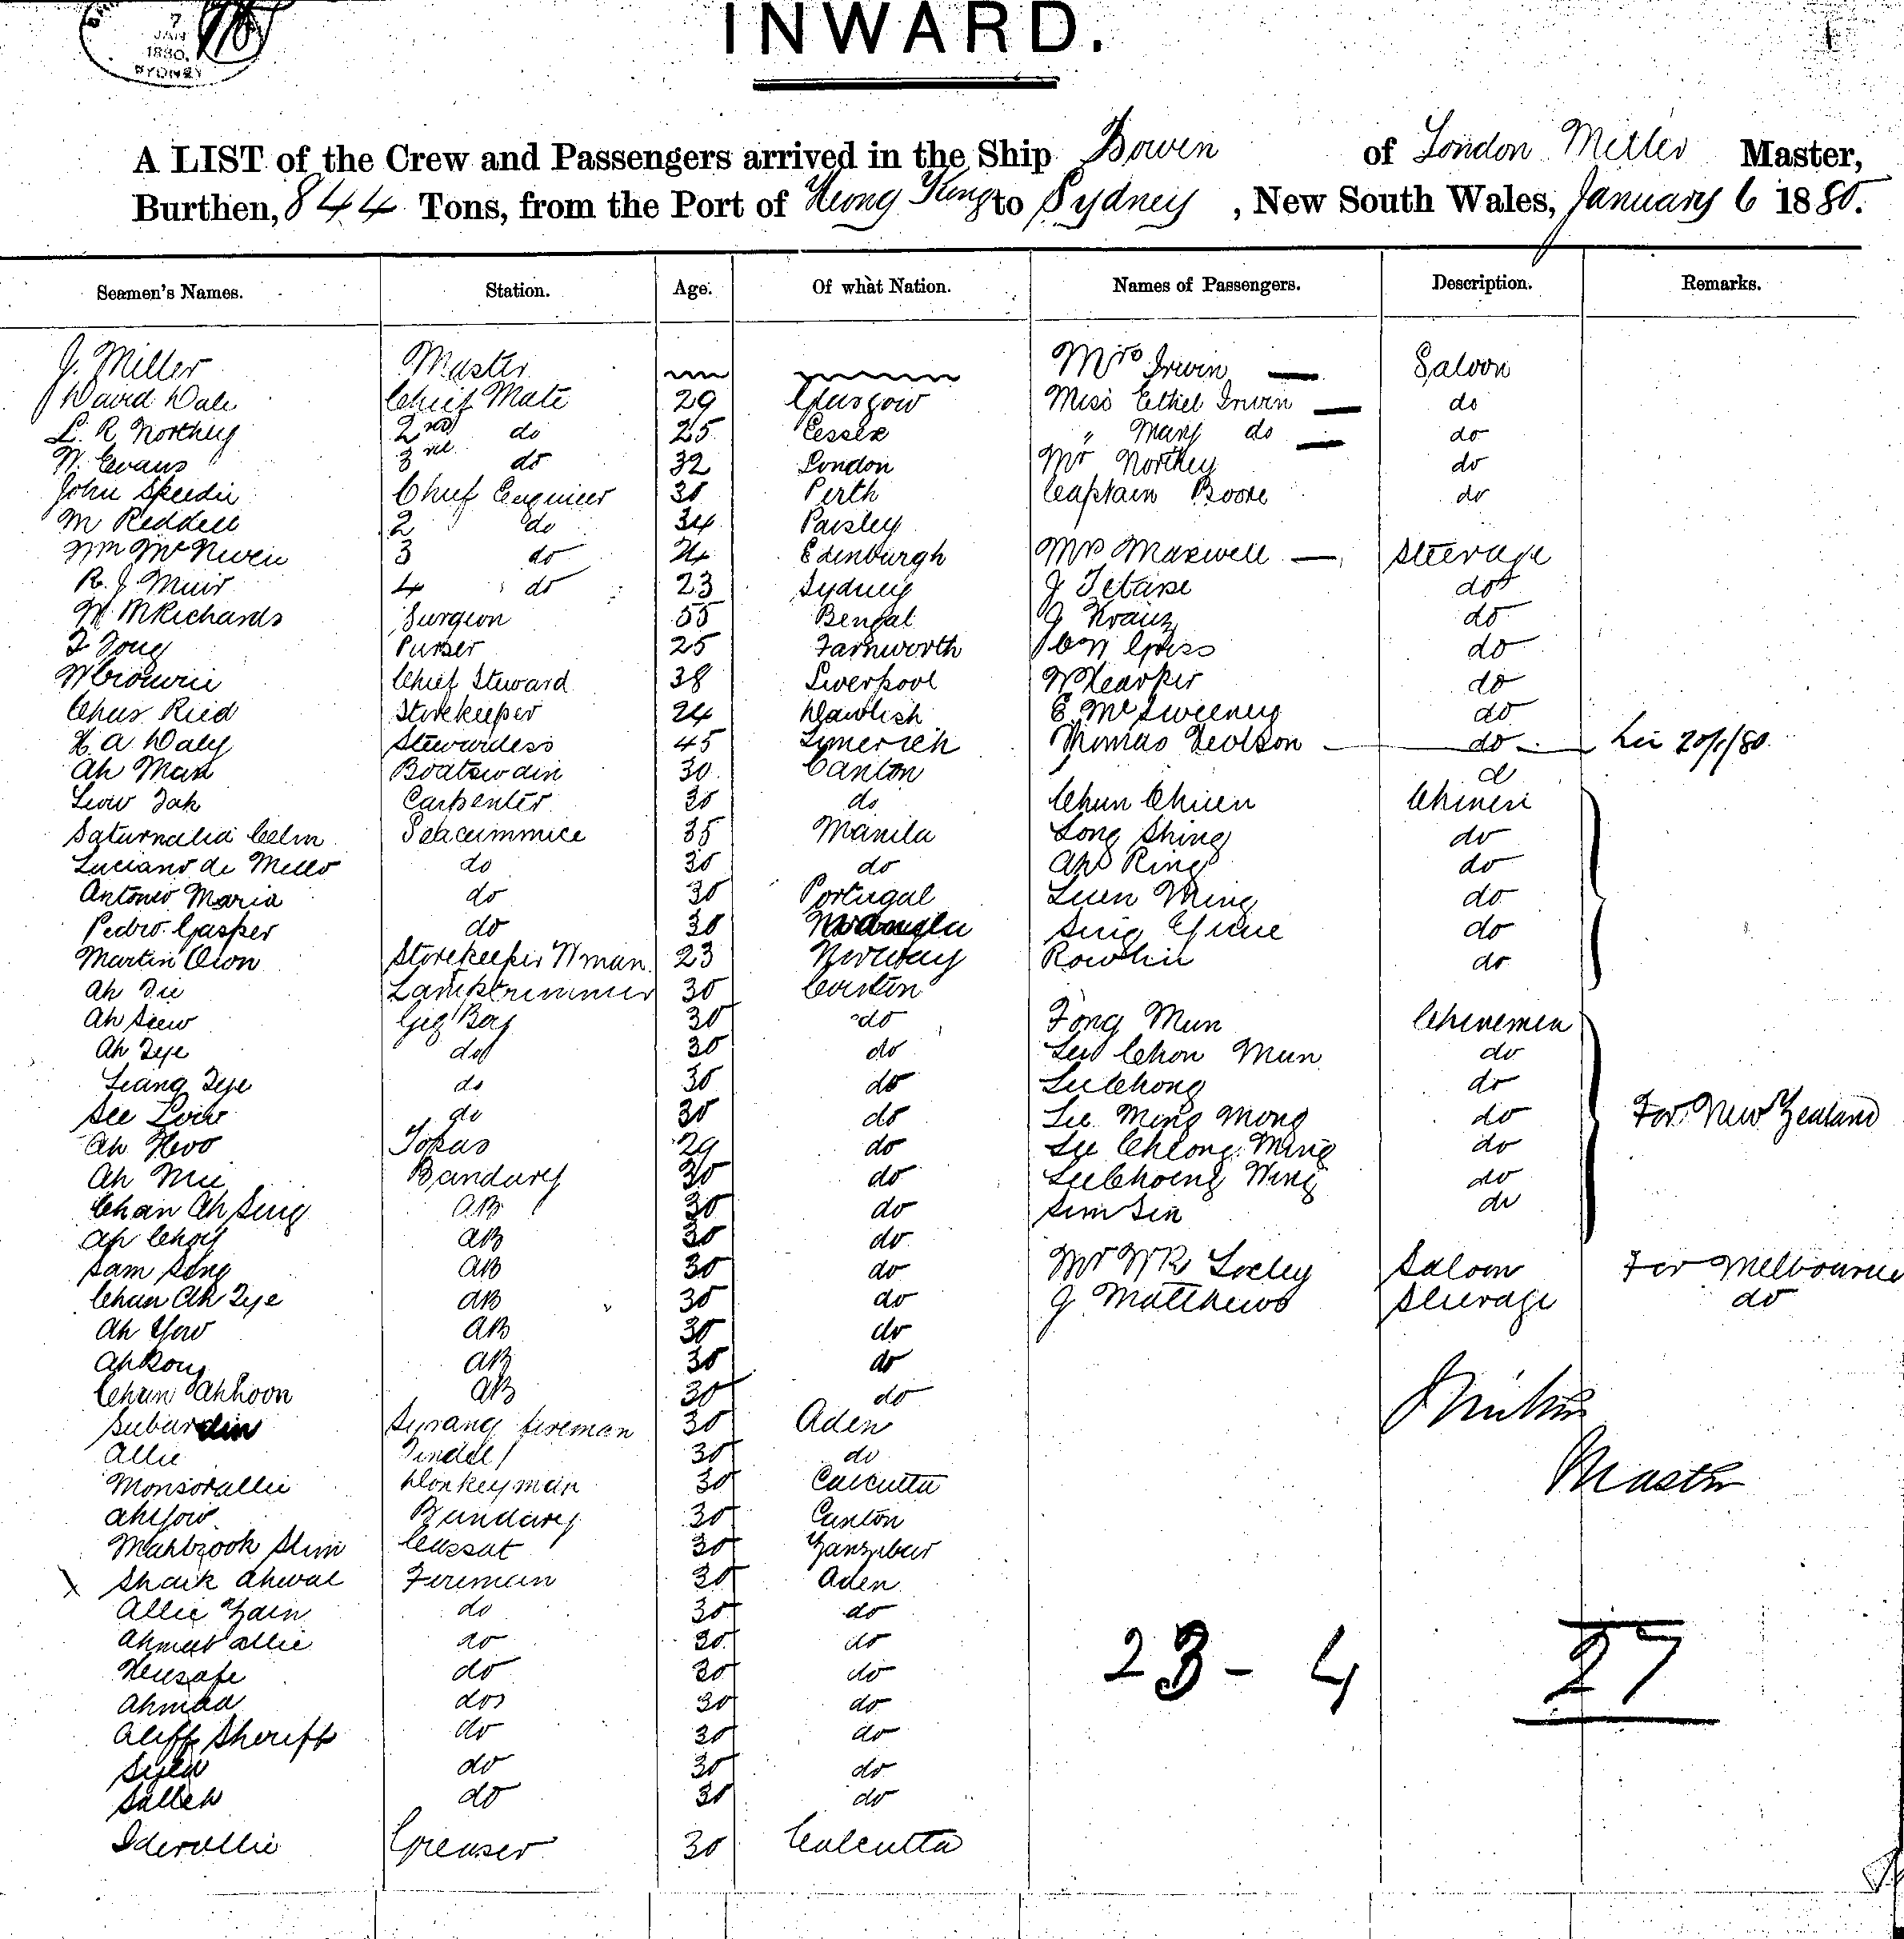 7
JAN
1880.
SYDNEY
INWARD.
A LIST of the Crew and Passengers arrived in the Ship Bowen of London Miller Master,
Burthen, 844 Tons, from the Port of Hong Kong to Sydney, New South Wales, January 6 1880.
Seamen's Names. Station. Age. Of what Nation. Names of Passengers. Description. Remarks.
J. Miller Master Mrs Irwin — Saloon
David Dale Chief Mate 29 Glasgow Miss Ethel Irwin — do
L. R Northey 2nd do 25 Essex " Mary do — do
W. Evans 3rd do 32 London Mr Northey do
John Speedie Chief Engineer 30 Perth Captain Boore do
M Reddell 2 do 34 Paisley
Wm McNiven 3 do 24 Edinburgh Mrs Maxwell — Steerage
R. J Muir 4 do 23 Sydney J do
W. M Richards Surgeon 55 Bengal J Kranz do
Purser 25 Farnworth do
Chief Steward 38 Liverpool do
Chas Ried Storekeeper 24 Dawlish E McSweeney do
H. A Daly Stewardess 45 Limerick Thomas do 20/1/80
Ah Man Boatswain 30 Canton
Carpenter 30 do Chun Chinese
Saturnalia 35 Manila Long Shing do
Luciano de Mello do 30 do Ah Ring do
Antonio Maria do 30 Portugal Luen Ming do
Pedro Gasper do 30 Sing do
Martin Storekeeper Wman 23 Norway do
Ah Lamptrimmer 30 Canton
Ah Seew Gig Boy 30 do Fong Mun Chinemen
Ah Tye do 30 do Lee Chon Mun do
Leang Tye do 30 do Lee Chong do
See do 30 do Lee Ming Mong do For New Zealand
Ah Hoo Topas 29 do Lee Cheong Ming do
Ah Mee Bandary 30 do Lee Choeng Wing do
Chan Ah Sing AB 30 do Sim Sin do
Ah Choy AB 30 do
Sam Sing AB 30 do Mr W R Saloon For Melbourne
Chan Ah Tye AB 30 do J Matthews Steerage do
Ah Yow AB 30 do
Ah Kong AB 30 do
Chun Ahhoon AB 30 do
Serang fireman 30 Aden
Allie Tindel 30 do
Monsorallie Donkeyman 30 Calcutta
Master
Ahyow Bandary 30 Canton
Mahbrook Slim Cassat 30 Zanzibar
Shaik Fireman 30 Aden
Allie Zain do 30 do
Ahmet Allie do 30 do
23 - 4 27
do 30 do
Ahmad do 30 do
Aliff Sheriff do 30 do
Syed do 30 do
Salleh do 30 do
Iderallie Greaser 30 Calcutta